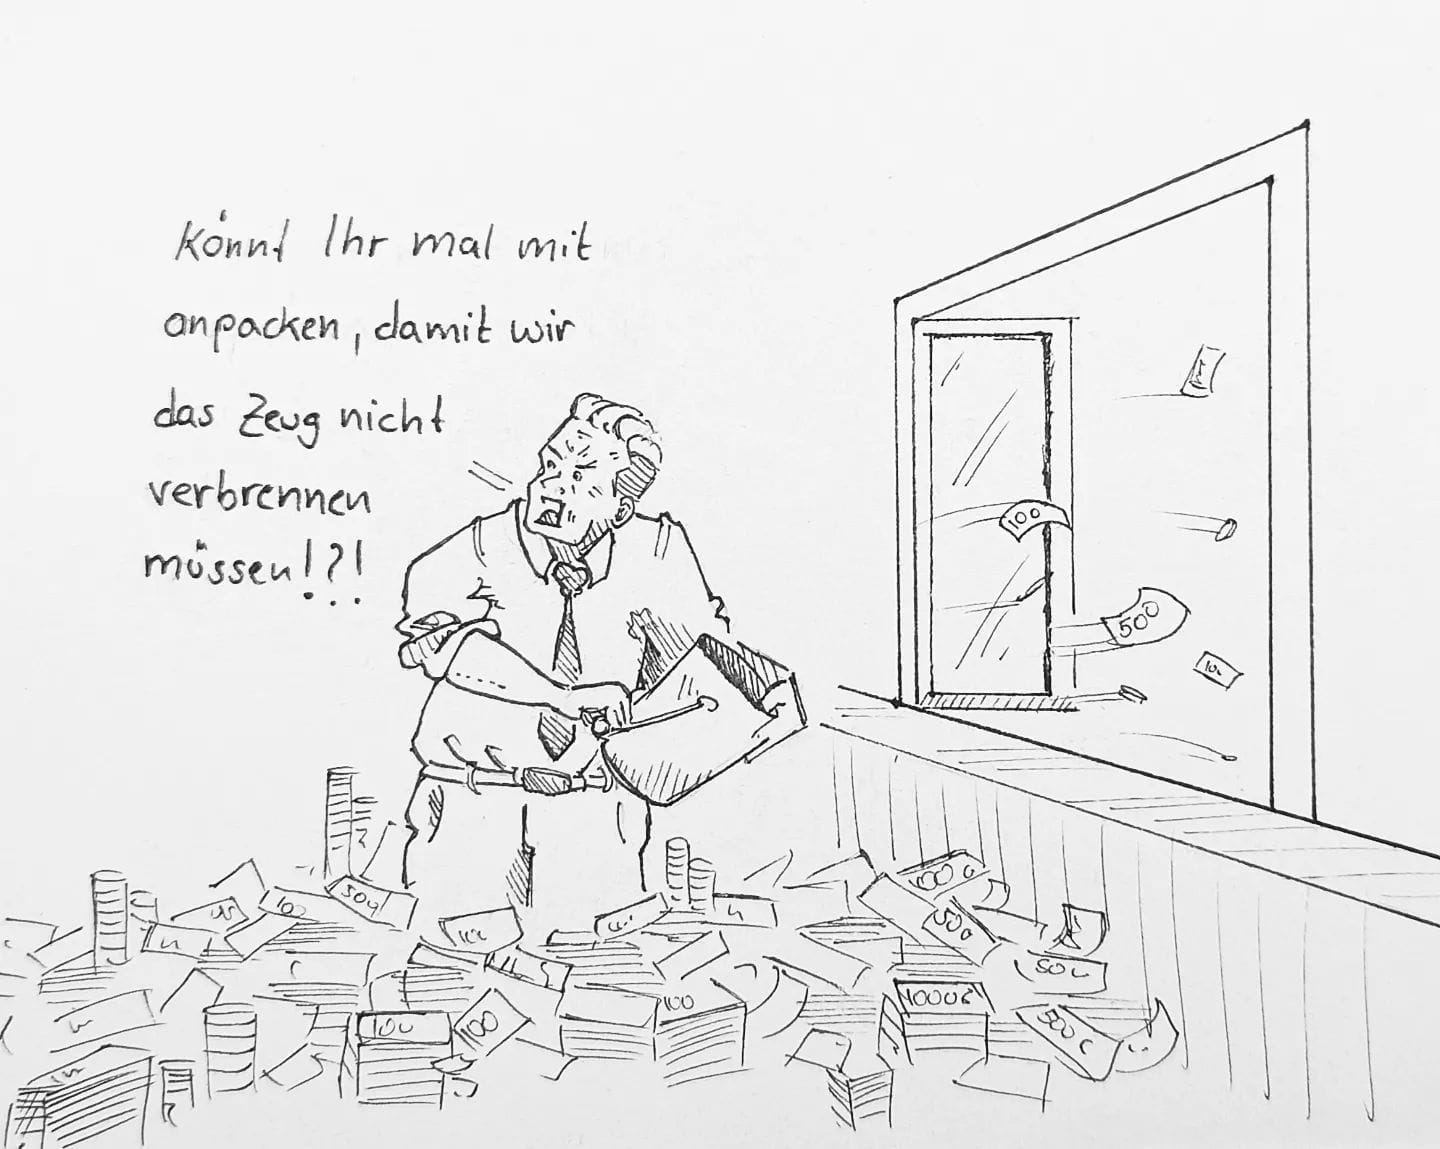 Könnt Ihr mal mit
anpacken, damit wir
das Zeug nicht
verbrennen
müssen!?!
100
500
100
500
1000
500
500
100
1000
500
100
100